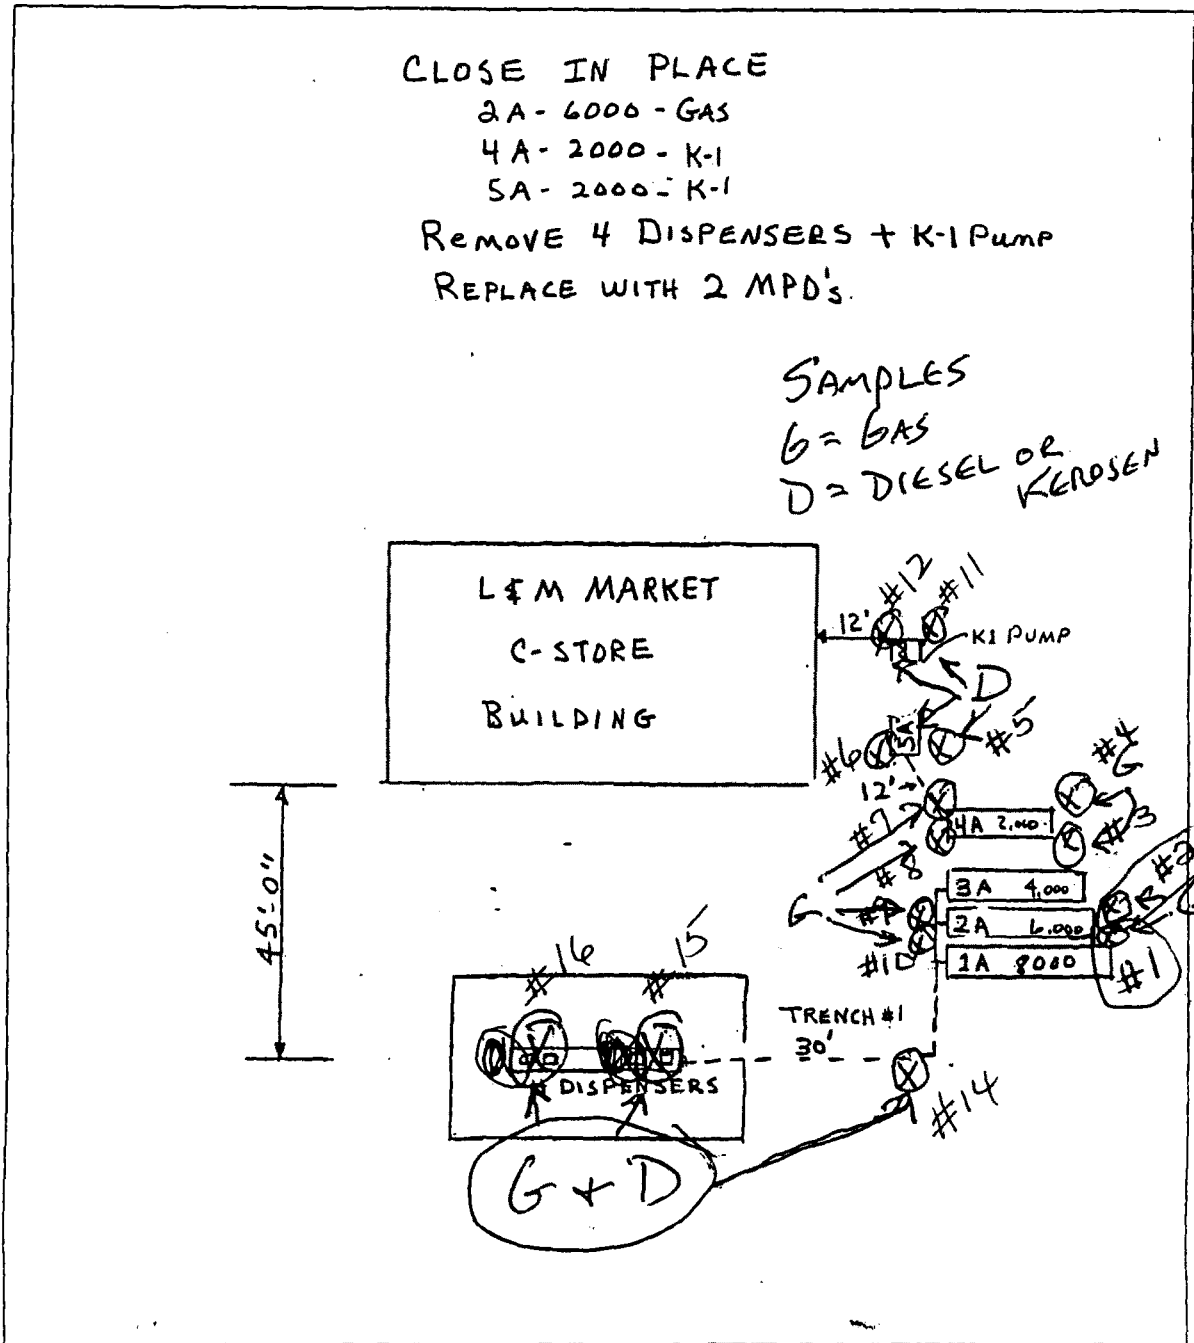 CLOSE IN PLACE
2A - 6000 - GAS
4A - 2000 - K-1
5A - 2000 - K-1
REMOVE 4 DISPENSERS + K-1 PUMP
REPLACE WITH 2 MPD's.
SAMPLES
G = GAS
D = DIESEL OR
KEROSEN
L & M MARKET
C-STORE
BUILDING
#12
#11
12'
K1 PUMP
D
5A
#6
#5
12'
#4
G
#7
4A 2,000
#3
#8
3A 4,000
#2
G
#9
2A 6,000
#10
1A 8000
#1
45'-0"
#16
#15
TRENCH #1
30'
DISPENSERS
#14
G + D